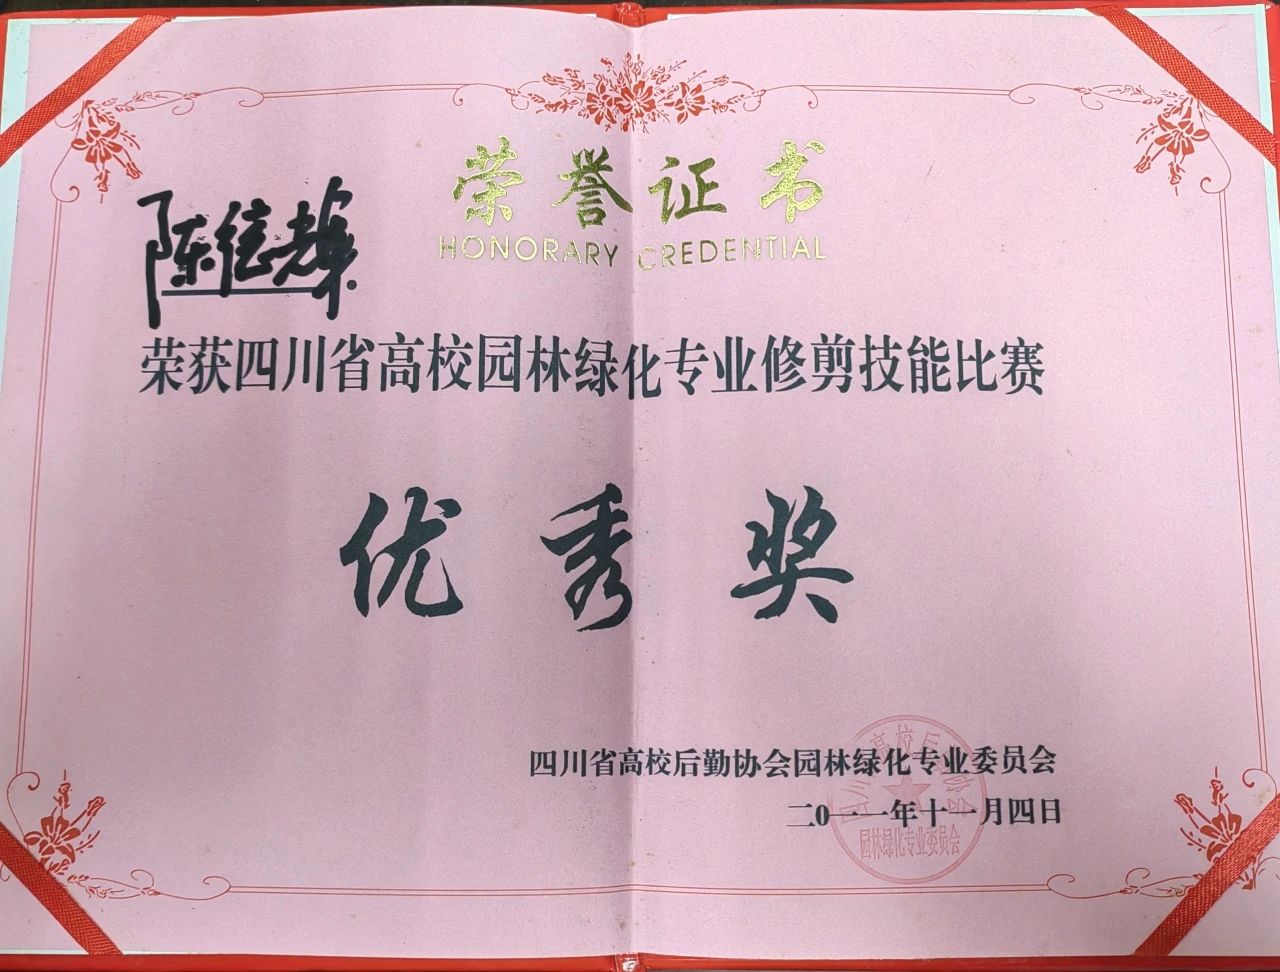 荣誉证书
HONORARY CREDENTIAL
陈信辉
荣获四川省高校园林绿化专业修剪技能比赛
优秀奖
四川省高校后勤协会园林绿化专业委员会
二0一一年十一月四日
园林绿化专业委员会